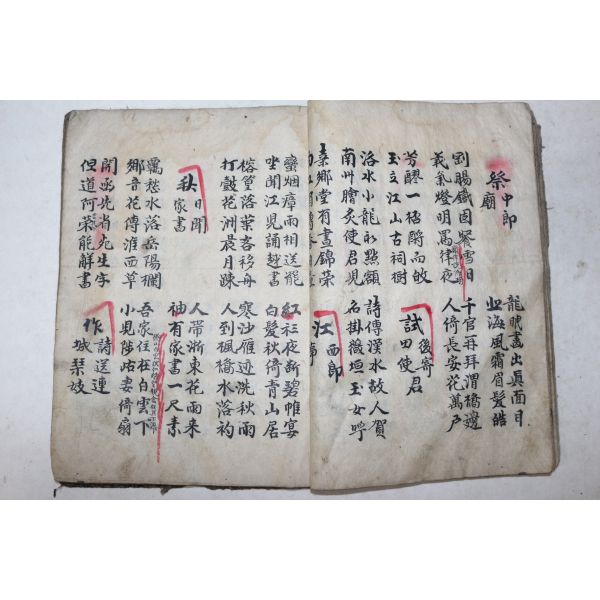 祭中郎廟
龍眠畫出眞面目
北海風霜眉髮皓
劉腸鐵固餐雪日
千官再拜渭橋邊
義氣燈明罵律夜
人倚長安花萬戶
芳醪一樽酹而敀
玉立江山古祠樹
試後寄田使君
洛水小龍初點額
詩傳漢水故人賀
南州膾炙使君見
名掛薇垣玉女呼
鄉堂有晝錦榮
江西郎
蠻烟瘴雨相送罷
紅衫夜斷碧帷宴
坐聞江兒誦越書
白髮秋倚靑山居
榕篁落葉客移舟
寒沙雁迹洗秋雨
打鼓花洲晨月疎
人到楓橋水落初
秋日聞家書
人帶浙東花雨來
袖有家書一尺素
羈愁水落岳陽欄
吾家住在白雲下
鄉音花傳淮西草
小兒陟岵妻倚扇
開函先省兒生字
但道阿榮能解書
作詩送連城琴妓